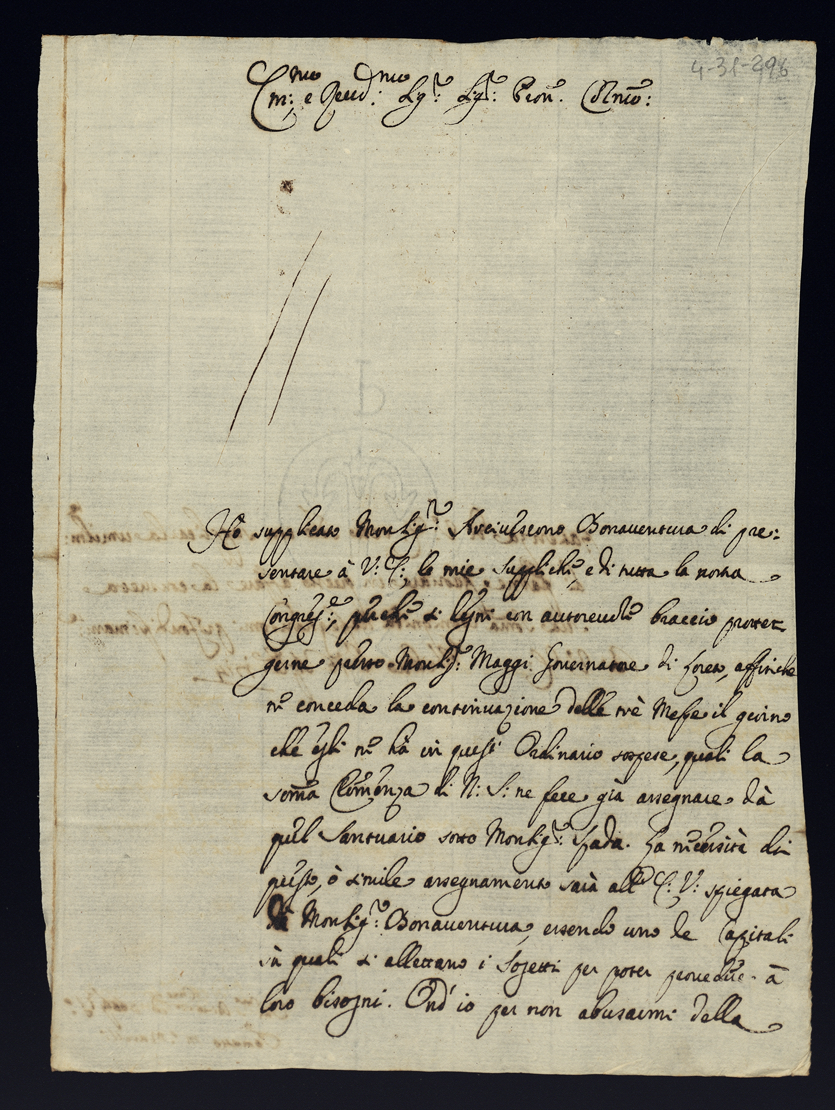 4-31-296
Em:mo e Reud:mo Sig:r Sig:r Pron: Colmo:
Hò supplicato Monsig:r Arciuescouo Bonauentura di pre:
sentare à V: E: le mie suppliche, e di tutta la nostra
Congreg:e, perche si degni con autoreuole braccio proteg
gerne presso Monsig:r Maggi Gouernatore di Loreto, affinche
ne conceda la continuazione delle trè Messe il giorno
che egli ne hà in quest' Ordinario sospese, quali la
somma Clemenza di N: S: ne fece già assegnare dà
quel Santuario sotto Monsig:r Spada. La necessità di
questo, ò simile assegnamento sarà all' E: V: spiegata
dà Monsig:r Bonauentura, essendo uno de Capitali
sù quali si allettano i Sogetti per poter prouedere à
loro bisogni. Ond' io per non abusarmi della